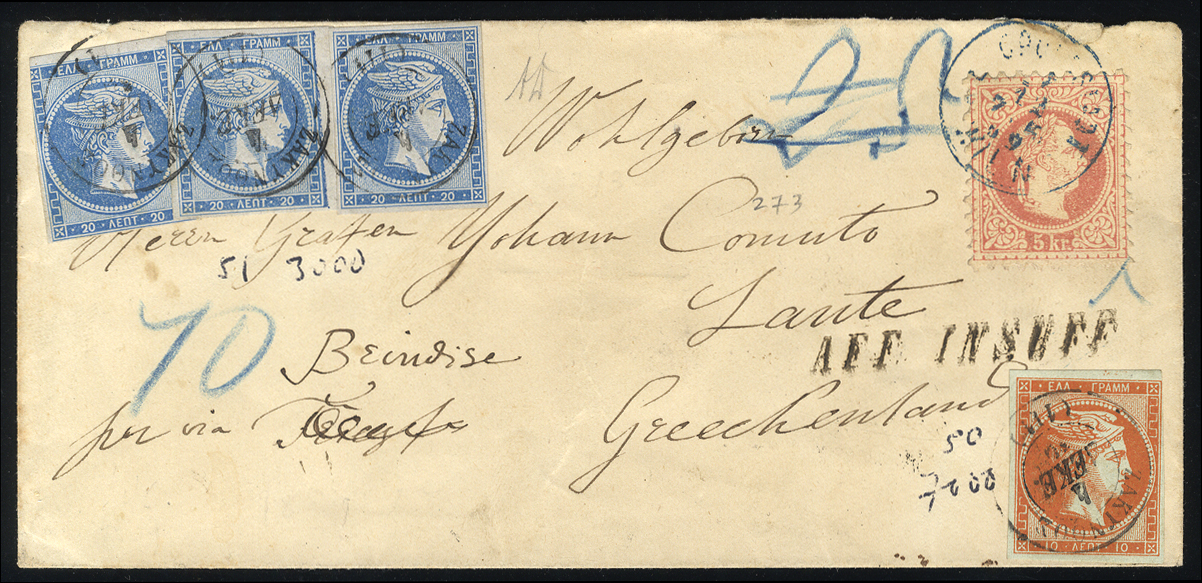 ΕΛΛ ΓΡΑΜΜ
ΕΛΛ ΓΡΑΜΜ
ΕΛΛ ΓΡΑΜΜ
20 ΛΕΠΤ 20
20 ΛΕΠΤ 20
20 ΛΕΠΤ 20
5 kr.
Wohlgeborn
273
Herrn Grafen Johann Comuto
51 3000
Zante
AFF. INSUFF
70
Brindise
per via
Griechenland
50
7000
ΕΛΛ ΓΡΑΜΜ
ΖΑΚΥΝΘΟΣ
10 ΛΕΠΤ 10